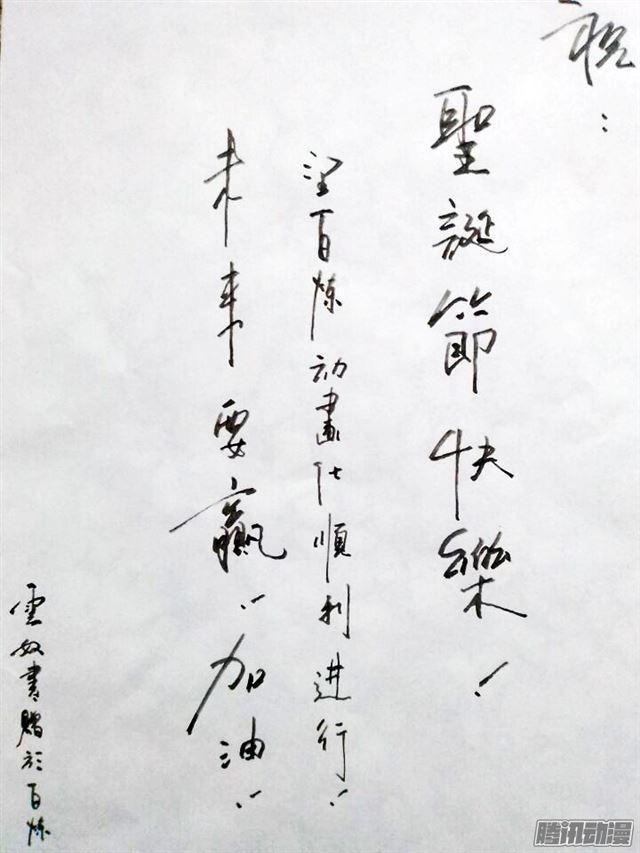 祝:
聖誕節快樂!
望百炼动畫化順利进行!
未来要赢!加油!
雲奴書贈於百炼
腾讯动漫